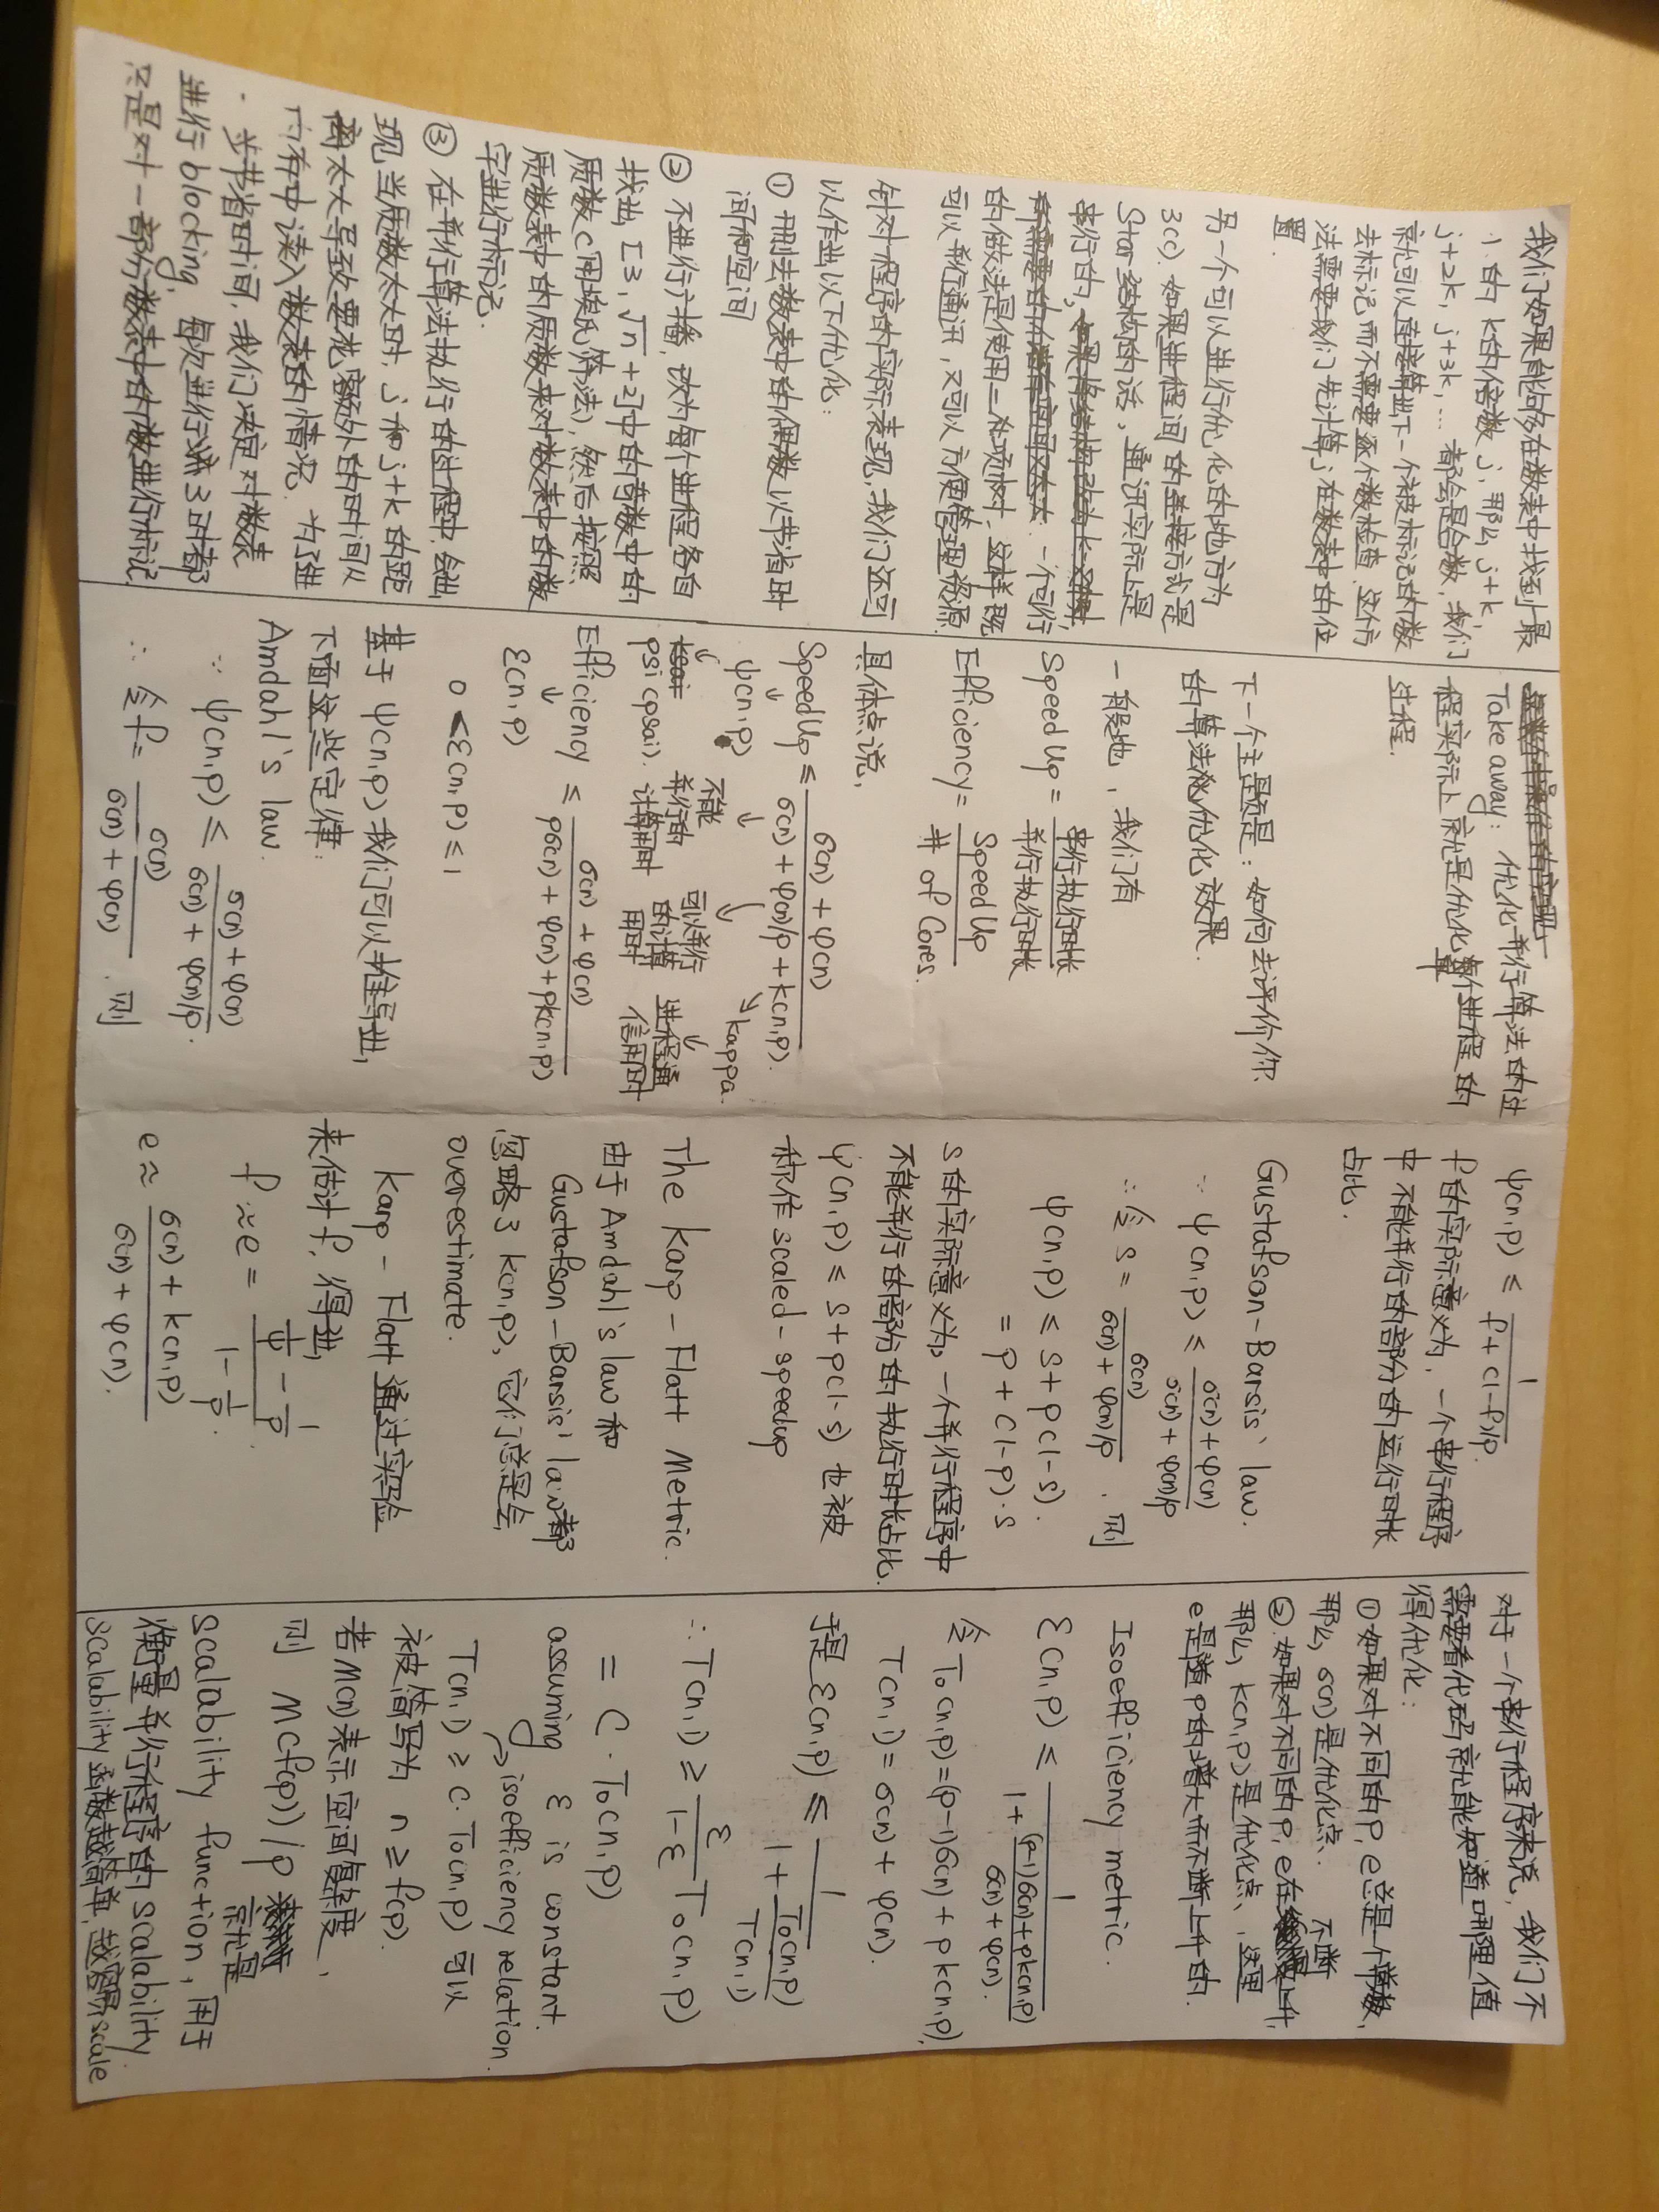 我们如果能够在数表中找到最
小的k的倍数j,那么j+k,
j+2k, j+3k, … 都会是合数,我们
就可以直接算出下一个被标记的数
去标记而不需要逐个数检查.这个方
法需要我们先计算j在数表中的位
置.
另一个可以进行优化的地方为
3(c). 如果进程间的连接方式是
Star结构的话,通讯实际上是
串行的,如果将结构改为k-叉树,
所需要的储存空间又太大.一个可行
的做法是使用二项树.这样既
可以并行通讯,又可以方便管理资源.
针对程序的实际表现,我们还可
以作出以下优化:
① 删去数表中的偶数以节省时
间和空间
② 不进行广播,改为每个进程各自
找出[3, √n+2]中的奇数中的
质数(用埃氏筛法),然后按照
质数表中的质数来对数表中的数
字进行标记.
③ 在并行算法执行的过程中,会出
现当质数太大时, j和j+k的距
离太大导致要花额外的时间从
内存中读入数表的情况.为了进
一步节省时间,我们决定对数表
进行blocking,每次进行流3时都
只是对一部分数表中的数进行标记.
Take away: 优化并行算法的过
程实际上就是优化单个进程的
过程.
下一个主题是:如何去评价你
的算法优化效果.
一般地,我们有
Speed Up = 串行执行时长 / 并行执行时长
Efficiency = Speed Up / # of Cores.
具体点说,
Speed Up ≤ (σ(n) + φ(n)) / (σ(n) + φ(n)/p + κ(n,p)).
ψ(n,p) kappa.
ksai psi (psai). 不能并行的计算用时 可以并行的计算用时 进程通信用时
Efficiency ≤ (σ(n) + φ(n)) / (pσ(n) + φ(n) + pκ(n,p))
ε(n,p)
0 < ε(n,p) ≤ 1
基于ψ(n,p)我们可以推导出
下面这些定律:
Amdahl's law.
∵ ψ(n,p) ≤ (σ(n) + φ(n)) / (σ(n) + φ(n)/p).
∴ 令 f = σ(n) / (σ(n) + φ(n)) . 则
ψ(n,p) ≤ 1 / (f + (1-f)/p).
f的实际意义为,一个串行程序
中不能并行的部分的运行时长
占比.
Gustafson-Barsis' law.
∵ ψ(n,p) ≤ (σ(n) + φ(n)) / (σ(n) + φ(n)/p)
∴ 令 s = σ(n) / (σ(n) + φ(n)/p) . 则
ψ(n,p) ≤ s + p(1-s).
= p + (1-p)·s
s的实际意义为,一个并行程序中
不能并行的部分的执行时长占比.
ψ(n,p) ≤ s + p(1-s) 也被
称作 scaled-speedup
The Karp-Flatt Metric.
由于 Amdahl's law 和
Gustafson-Barsis' law都
忽略了κ(n,p),它们总是会
overestimate.
Karp-Flatt 通过实验
来估计f,得出
f ≈ e = (1/ψ - 1/p) / (1 - 1/p).
e ≈ (σ(n) + κ(n,p)) / (σ(n) + φ(n)).
对于一个串行程序来说,我们不
需要看代码就能知道哪里值
得优化:
①如果对不同的p, e总是一个常数,
那么σ(n)是优化点.
②.如果对不同的p, e在不断上升,
那么κ(n,p)是优化点,这里
e是随p的增大而不断上升的.
Isoefficiency metric.
ε(n,p) ≤ 1 / (1 + ((p-1)σ(n) + pκ(n,p)) / (σ(n) + φ(n)).)
令 T₀(n,p) = (p-1)σ(n) + pκ(n,p),
T(n,1) = σ(n) + φ(n).
于是 ε(n,p) ≤ 1 / (1 + T₀(n,p) / T(n,1))
∴ T(n,1) ≥ ε/(1-ε) T₀(n,p)
= C · T₀(n,p)
assuming ε is constant.
isoefficiency relation.
T(n,1) ≥ C · T₀(n,p) 可以
被简写为 n ≥ f(p).
若M(n)表示空间复杂度,
则 M(f(p))/p 就是
scalability function, 用于
衡量并行程序的scalability.
scalability函数越简单,越容易scale